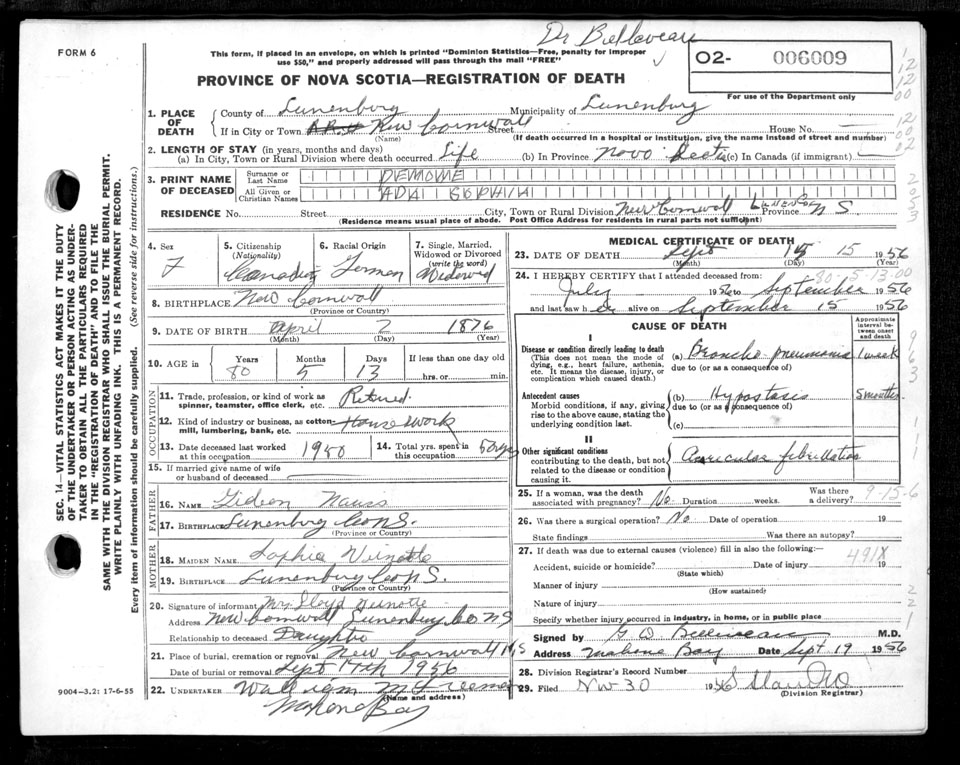 Dr Belliveau
FORM 6
This form, if placed in an envelope, on which is printed "Dominion Statistics—Free, penalty for improper
use $50," and properly addressed will pass through the mail "FREE"
02- 006009
For use of the Department only
PROVINCE OF NOVA SCOTIA—REGISTRATION OF DEATH
1. PLACE OF DEATH
County of Lunenburg Municipality of Lunenburg
If in City or Town New Cornwall Street House No.
(Name) (If death occurred in a hospital or institution, give the name instead of street and number)
2. LENGTH OF STAY (in years, months and days)
(a) In City, Town or Rural Division where death occurred Life (b) In Province Nova Scotia (c) In Canada (if immigrant)
3. PRINT NAME OF DECEASED
Surname or Last Name DEMONE
All Given or Christian Names ADA SOPHIA
RESIDENCE No. Street City, Town or Rural Division New Cornwall Lunenburg Province N S
(Residence means usual place of abode. Post Office Address for residents in rural parts not sufficient)
4. Sex F
5. Citizenship (Nationality) Canadian
6. Racial Origin German
7. Single, Married, Widowed or Divorced (write the word) Widowed
8. BIRTHPLACE New Cornwall
(Province or Country)
9. DATE OF BIRTH April 2 1876
(Month) (Day) (Year)
10. AGE in Years 80 Months 5 Days 13 If less than one day old
hrs. or min.
OCCUPATION
11. Trade, profession, or kind of work as spinner, teamster, office clerk, etc. Retired
12. Kind of industry or business, as cotton mill, lumbering, bank, etc. House Work
13. Date deceased last worked at this occupation 1950
14. Total yrs. spent in this occupation 50 yrs
15. If married give name of wife or husband of deceased
FATHER
16. NAME Gideon Nauss
17. BIRTHPLACE Lunenburg Co N S.
(Province or Country)
MOTHER
18. MAIDEN NAME Sophia Veinotte
19. BIRTHPLACE Lunenburg Co N S.
(Province or Country)
20. Signature of informant Mrs Lloyd Veinotte
Address New Cornwall Lunenburg Co N S
Relationship to deceased Daughter
21. Place of burial, cremation or removal New Cornwall N S
Date of burial or removal Sept 17th 1956
22. UNDERTAKER William
(Name and address)
Mahone Bay
MEDICAL CERTIFICATE OF DEATH
23. DATE OF DEATH Sept 15 1956
(Month) (Day)
80-5-13.00
24. I HEREBY CERTIFY that I attended deceased from:
July 1956 to September 1956
and last saw h er alive on September 15 1956
CAUSE OF DEATH
Approximate interval between onset and death
I
Disease or condition directly leading to death
(This does not mean the mode of dying, e.g., heart failure, asthenia, etc. It means the disease, injury, or complication which caused death.)
(a) Broncho-pneumonia 1 week
due to (or as a consequence of)
Antecedent causes
Morbid conditions, if any, giving rise to the above cause, stating the underlying condition last.
(b) Hypostasis 5 months
due to (or as a consequence of)
(c)
II
Other significant conditions
contributing to the death, but not related to the disease or condition causing it.
Auricular fibrillation
25. If a woman, was the death associated with pregnancy? No Duration weeks. Was there a delivery?
9-15-6
26. Was there a surgical operation? No Date of operation 19
State findings Was there an autopsy?
27. If death was due to external causes (violence) fill in also the following:—
491X
Accident, suicide or homicide? Date of injury 19
(State which)
Manner of injury
(How sustained)
Nature of injury
Specify whether injury occurred in industry, in home, or in public place
Signed by G D Belliveau M.D.
Address Mahone Bay Date Sept 19 1956
28. Division Registrar's Record Number
29. Filed Nov 30 1956
(Division Registrar)
SEC. 14—VITAL STATISTICS ACT, MAKES IT THE DUTY
OF THE UNDERTAKER OR PERSON ACTING AS UNDERTAKER "TO OBTAIN ALL THE PARTICULARS REQUIRED
IN THE "REGISTRATION OF DEATH" AND TO FILE THE
SAME WITH THE DIVISION REGISTRAR WHO SHALL ISSUE THE BURIAL PERMIT.
WRITE PLAINLY WITH UNFADING INK. THIS IS A PERMANENT RECORD.
Every item of information should be carefully supplied. (See reverse side for instructions.)
9004-3.2: 17-6-55